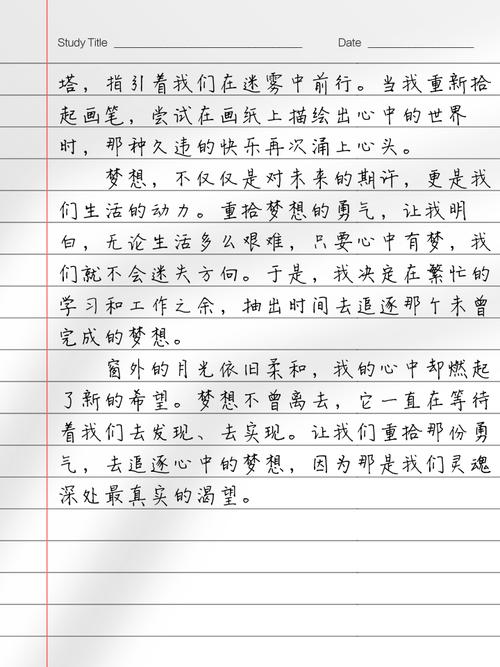 Study Title Date
塔，指引着我们在迷雾中前行。当我重新拾
起画笔，尝试在画纸上描绘出心中的世界
时，那种久违的快乐再次涌上心头。
梦想，不仅仅是对未来的期许，更是我
们生活的动力。重拾梦想的勇气，让我明
白，无论生活多么艰难，只要心中有梦，我
们就不会迷失方向。于是，我决定在繁忙的
学习和工作之余，抽出时间去追逐那个未曾
完成的梦想。
窗外的月光依旧柔和，我的心中却燃起
了新的希望。梦想不曾离去，它一直在等待
着我们去发现、去实现。让我们重拾那份勇
气，去追逐心中的梦想，因为那是我们灵魂
深处最真实的渴望。